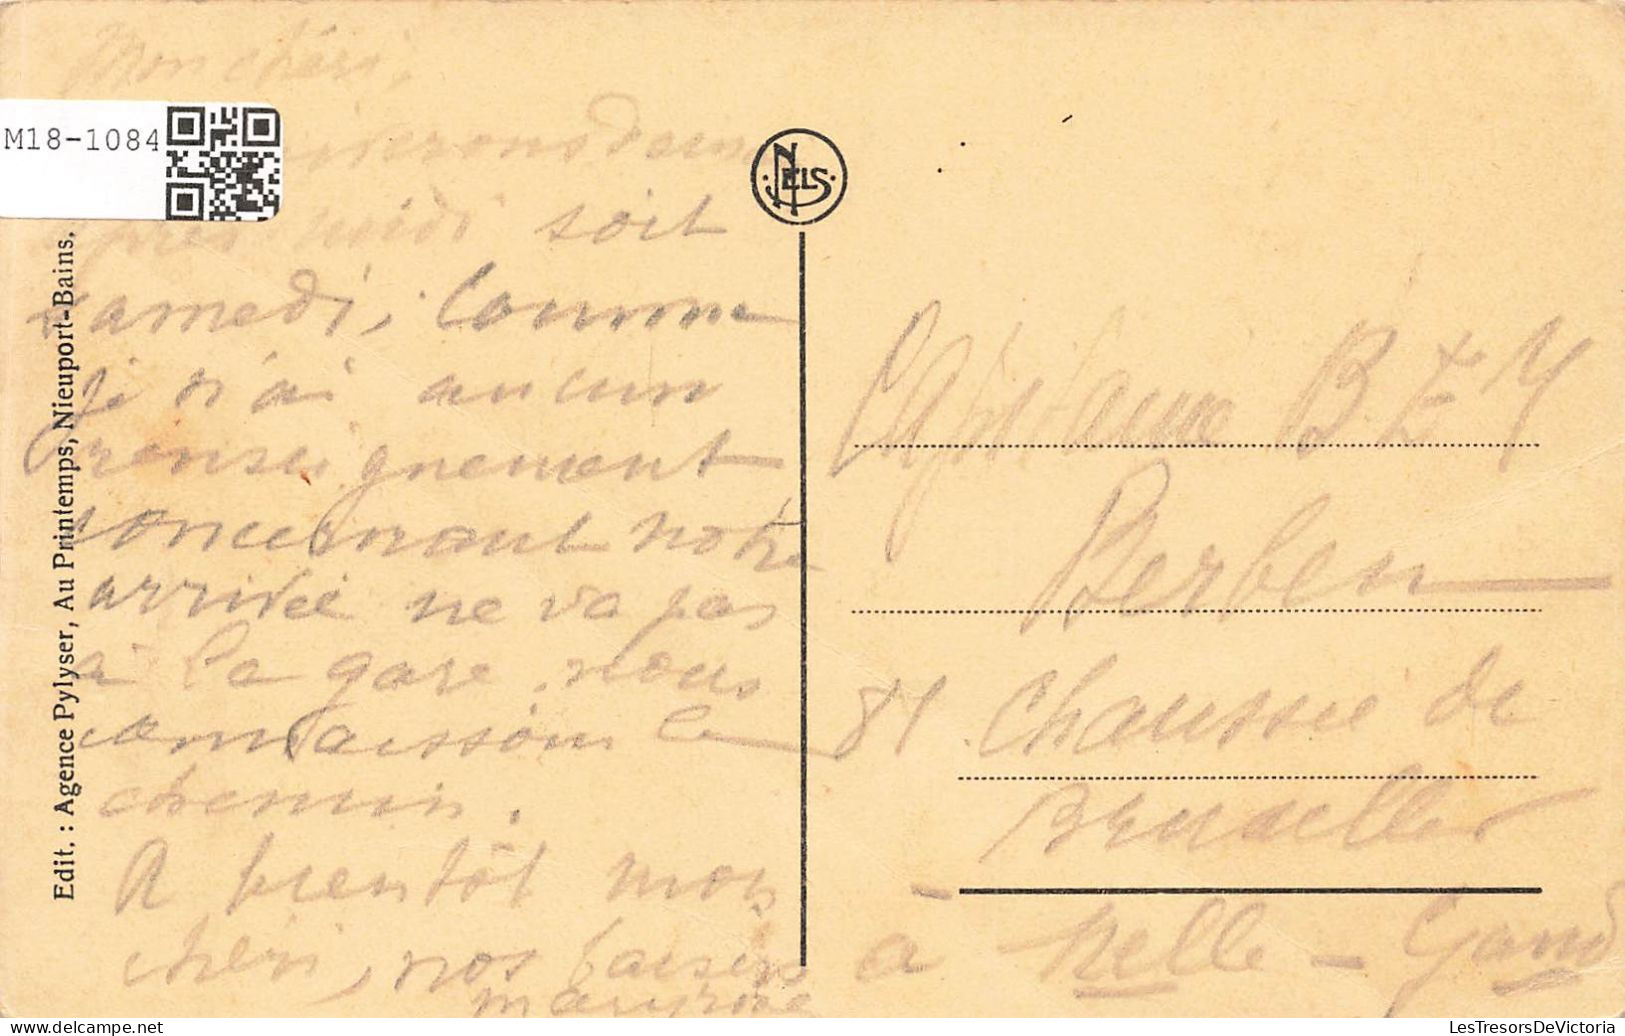 Mon chéri,
M18-1084
après midi soit
samedi, Comme
je n'ai aucun
renseignement
concernant notre
arrivée ne va pas
à la gare. nous
connaissons le
chemin.
A bientôt mon
chéri, nos baisers
Edit. : Agence Pylyser, Au Printemps, Nieuport-Bains.
NELS
Capitaine B E M
Berben
81 Chaussée de
Bruxelles
à Melle - Gand
LesTresorsDeVictoria